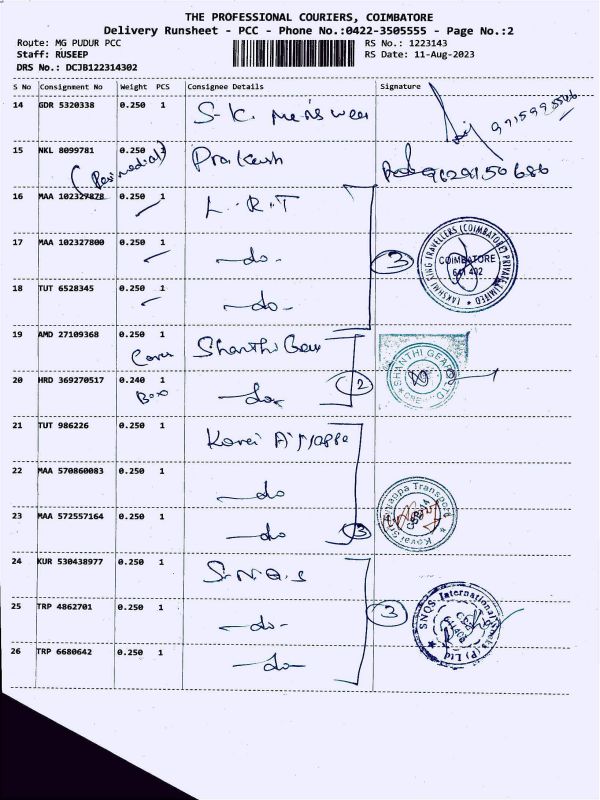 THE PROFESSIONAL COURIERS, COIMBATORE
Delivery Runsheet - PCC - Phone No.:0422-3505555 - Page No.:2
Route: MG PUDUR PCC
RS No.: 1223143
Staff: RUSEEP
RS Date: 11-Aug-2023
DRS No.: DCJB122314302
S No Consignment No Weight PCS Consignee Details Signature
14 GDR 5320338 0.250 1 S.K. Mens wear 9715995566
15 NKL 8099781 0.250 1 Prakash 9629150686
16 MAA 102327878 0.250 1 L.R.T
17 MAA 102327800 0.250 1 -do- 3
LAKSHMI SING TRAVELLERS (COIMBATORE) PRIVATE LIMITED
COIMBATORE
641 402
18 TUT 6528345 0.250 1 -do-
19 AMD 27109368 0.250 1 Shanthi Gear
Cover
SHANTHI GEARS LTD
20 HRD 369270517 0.240 1 -do- 2
Box
21 TUT 986226 0.250 1 Kovai Aiyappa
22 MAA 570860083 0.250 1 -do
23 MAA 572557164 0.250 1 -do 3
Kovai Sri Aiyappa Transport
24 KUR 530438977 0.250 1 S.N.Q.S
25 TRP 4862701 0.250 1 -do- 3
SNQS International (P) Ltd
26 TRP 6680642 0.250 1 -do-